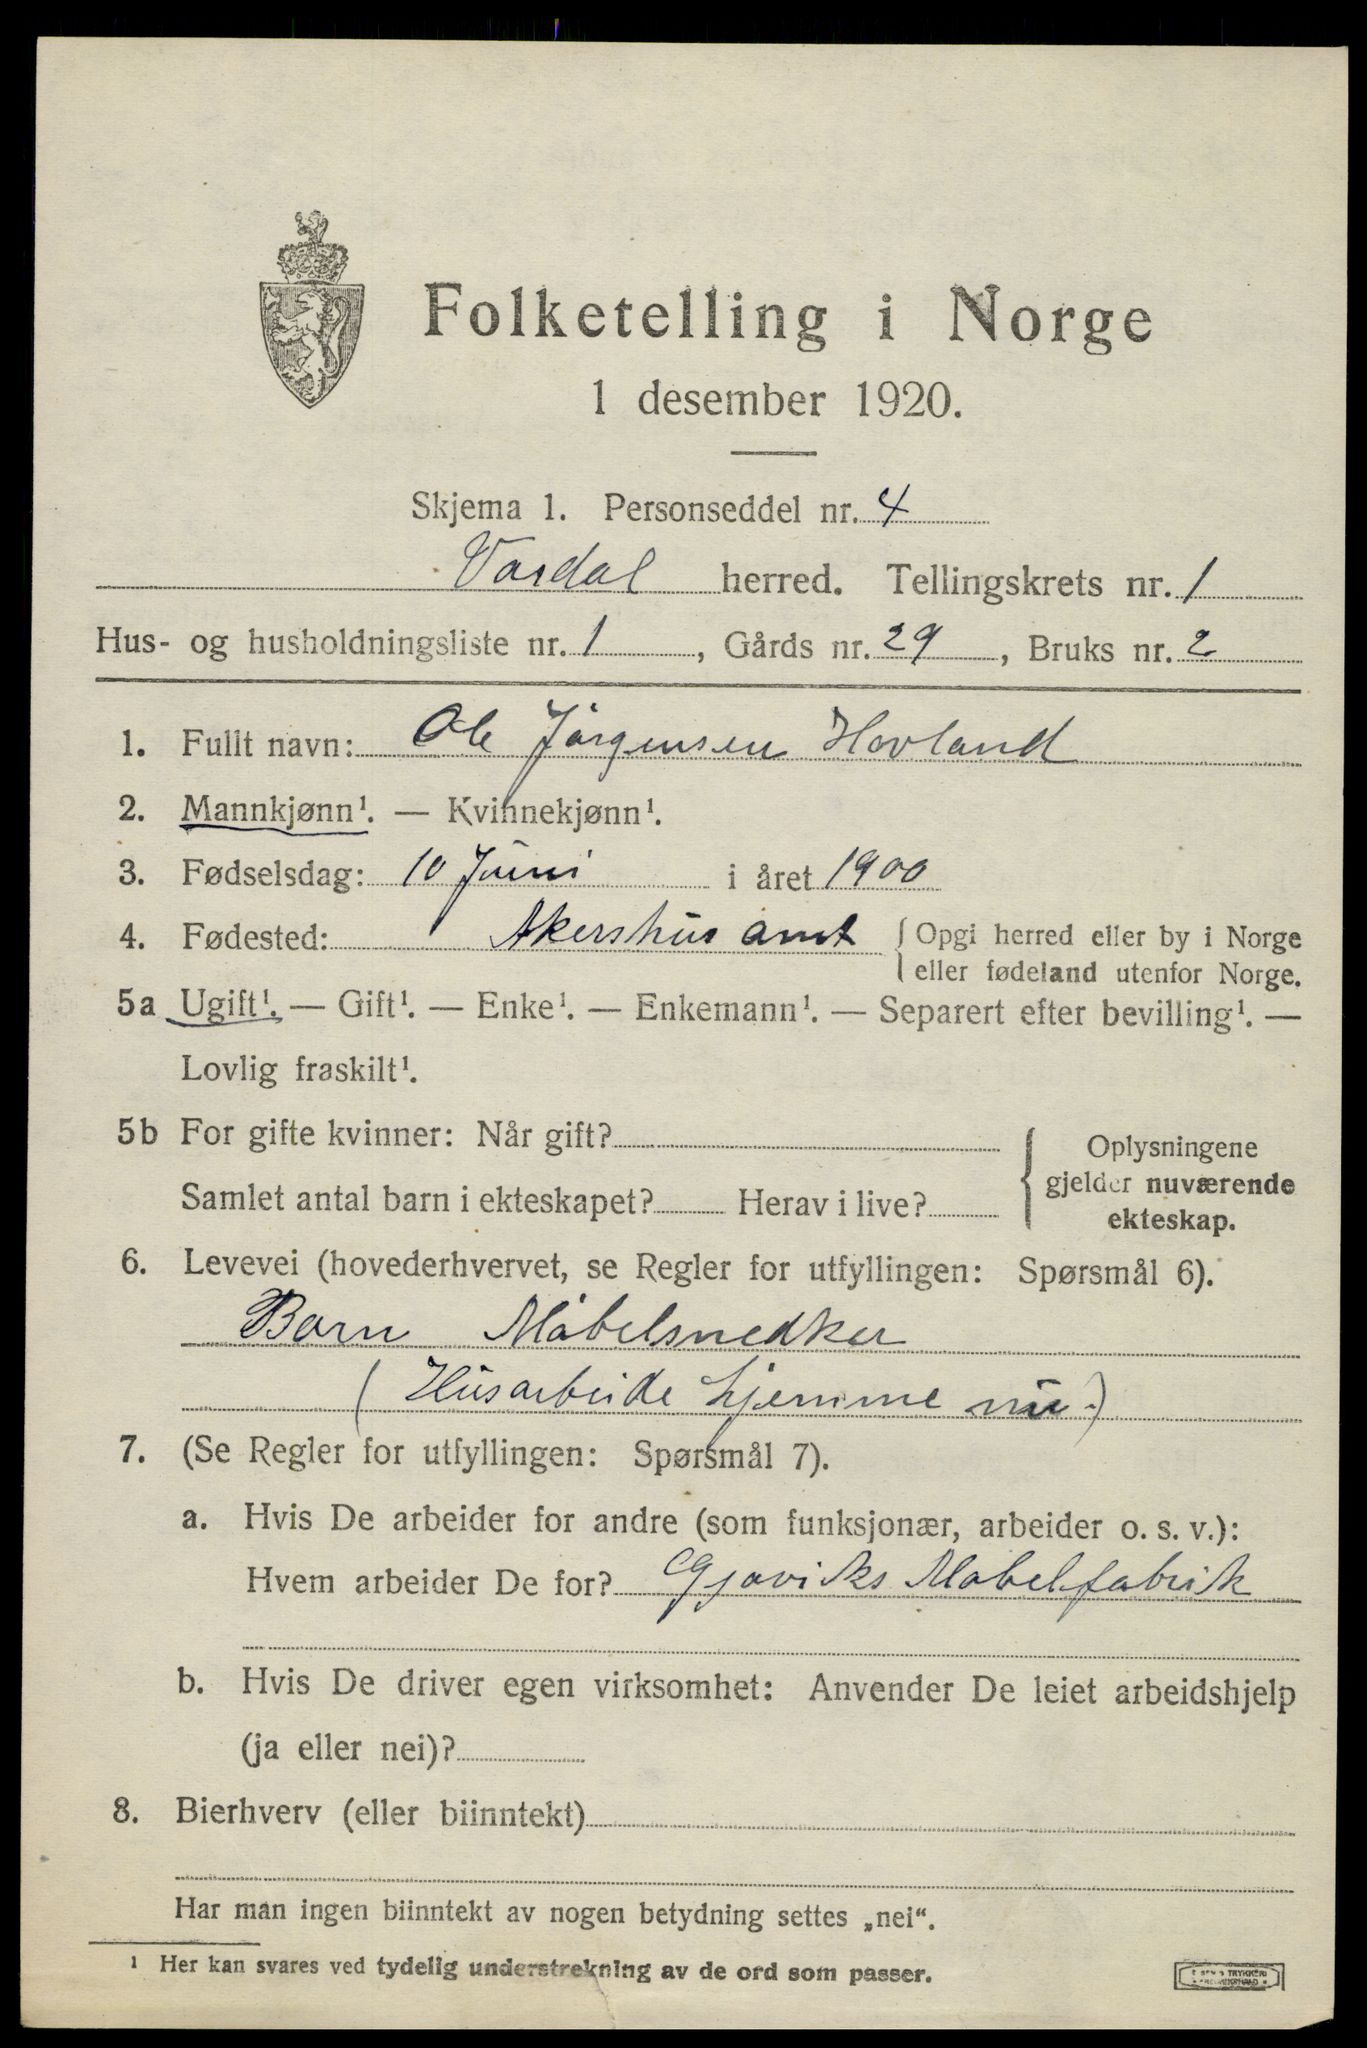 Folketelling i Norge
1 desember 1920.
Skjema 1. Personseddel nr. 4
Vardal herred. Tellingskrets nr. 1
Hus- og husholdningsliste nr. 1, Gårds nr. 29, Bruks nr. 2
1. Fullt navn: Ole Jörgensen Hovland
2. Mannkjønn¹. — Kvinnekjønn¹.
3. Fødselsdag: 10 Juni i året 1900
4. Fødested: Akershus amt { Opgi herred eller by i Norge
eller fødeland utenfor Norge.
5a Ugift¹. — Gift¹. — Enke¹. — Enkemann¹. — Separert efter bevilling¹. —
Lovlig fraskilt¹.
5b For gifte kvinner: Når gift?
Samlet antal barn i ekteskapet? Herav i live?
Oplysningene
gjelder nuværende
ekteskap.
6. Levevei (hovederhvervet, se Regler for utfyllingen: Spørsmål 6).
Barn Möbelsnedker
(Husarbeide hjemme nu.)
7. (Se Regler for utfyllingen: Spørsmål 7).
a. Hvis De arbeider for andre (som funksjonær, arbeider o. s. v.):
Hvem arbeider De for? Gjøviks Mobelfabrik
b. Hvis De driver egen virksomhet: Anvender De leiet arbeidshjelp
(ja eller nei)?
8. Bierhverv (eller biinntekt)
Har man ingen biinntekt av nogen betydning settes „nei“.
¹ Her kan svares ved tydelig understrekning av de ord som passer.